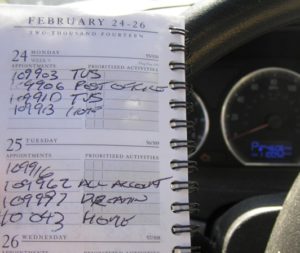 FEBRUARY 24-26
TWO-THOUSAND FOURTEEN
24 MONDAY
WEEK 9
55/310
APPOINTMENTS PRIORITIZED ACTIVITIES
109903 TUS
109906 POST OFFICE
109910 TUS
109913 HOME
25 TUESDAY
56/309
APPOINTMENTS PRIORITIZED ACTIVITIES
109916
109962 ALL ACCOUNT
109997
110043 HOME
26 WEDNESDAY